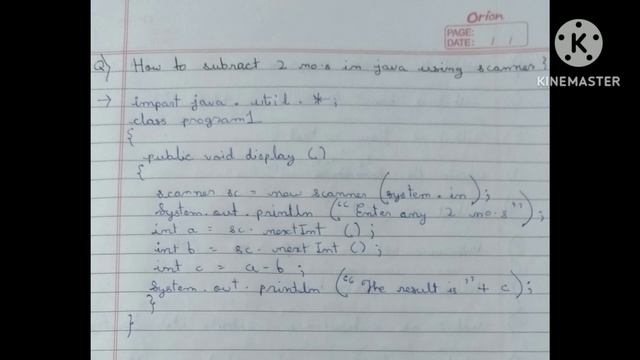 Orion
PAGE:
DATE: / /
KINEMASTER
Q) How to subtract 2 no.s in java using scanner}
→ import java.util.*;
class program1
{
public void display ()
{
scanner sc = new scanner (system.in);
System.out.println (“Enter any 2 no.s”);
int a = sc.nextInt ();
int b = sc.nextInt ();
int c = a-b;
System.out.println (“The result is”+ c);
}
}